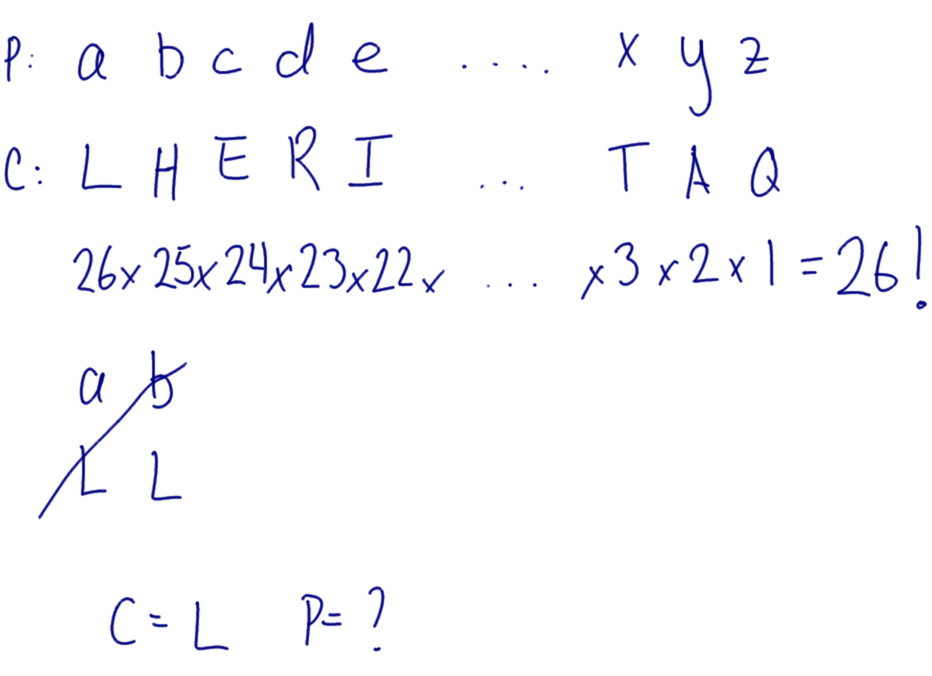 P: a b c d e .... x y z
C: L H E R I ... T A Q
26x 25x 24x 23x 22x ... x3 x 2 x 1 = 26!
a b
L L
C = L P = ?